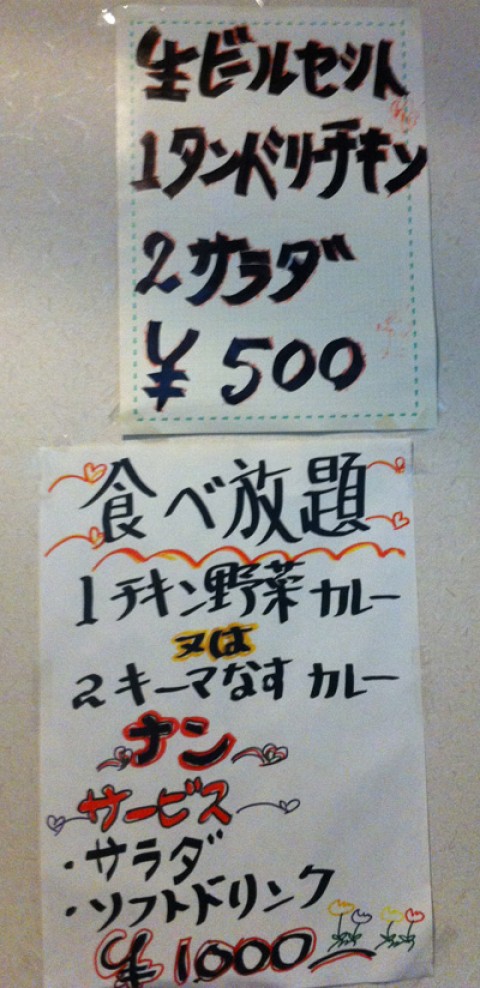 生ビールセット
1タンドリーチキン
2サラダ
¥500
食べ放題
1チキン野菜カレー
又は
2キーマなすカレー
ナン
サービス
・サラダ
・ソフトドリンク
¥1000